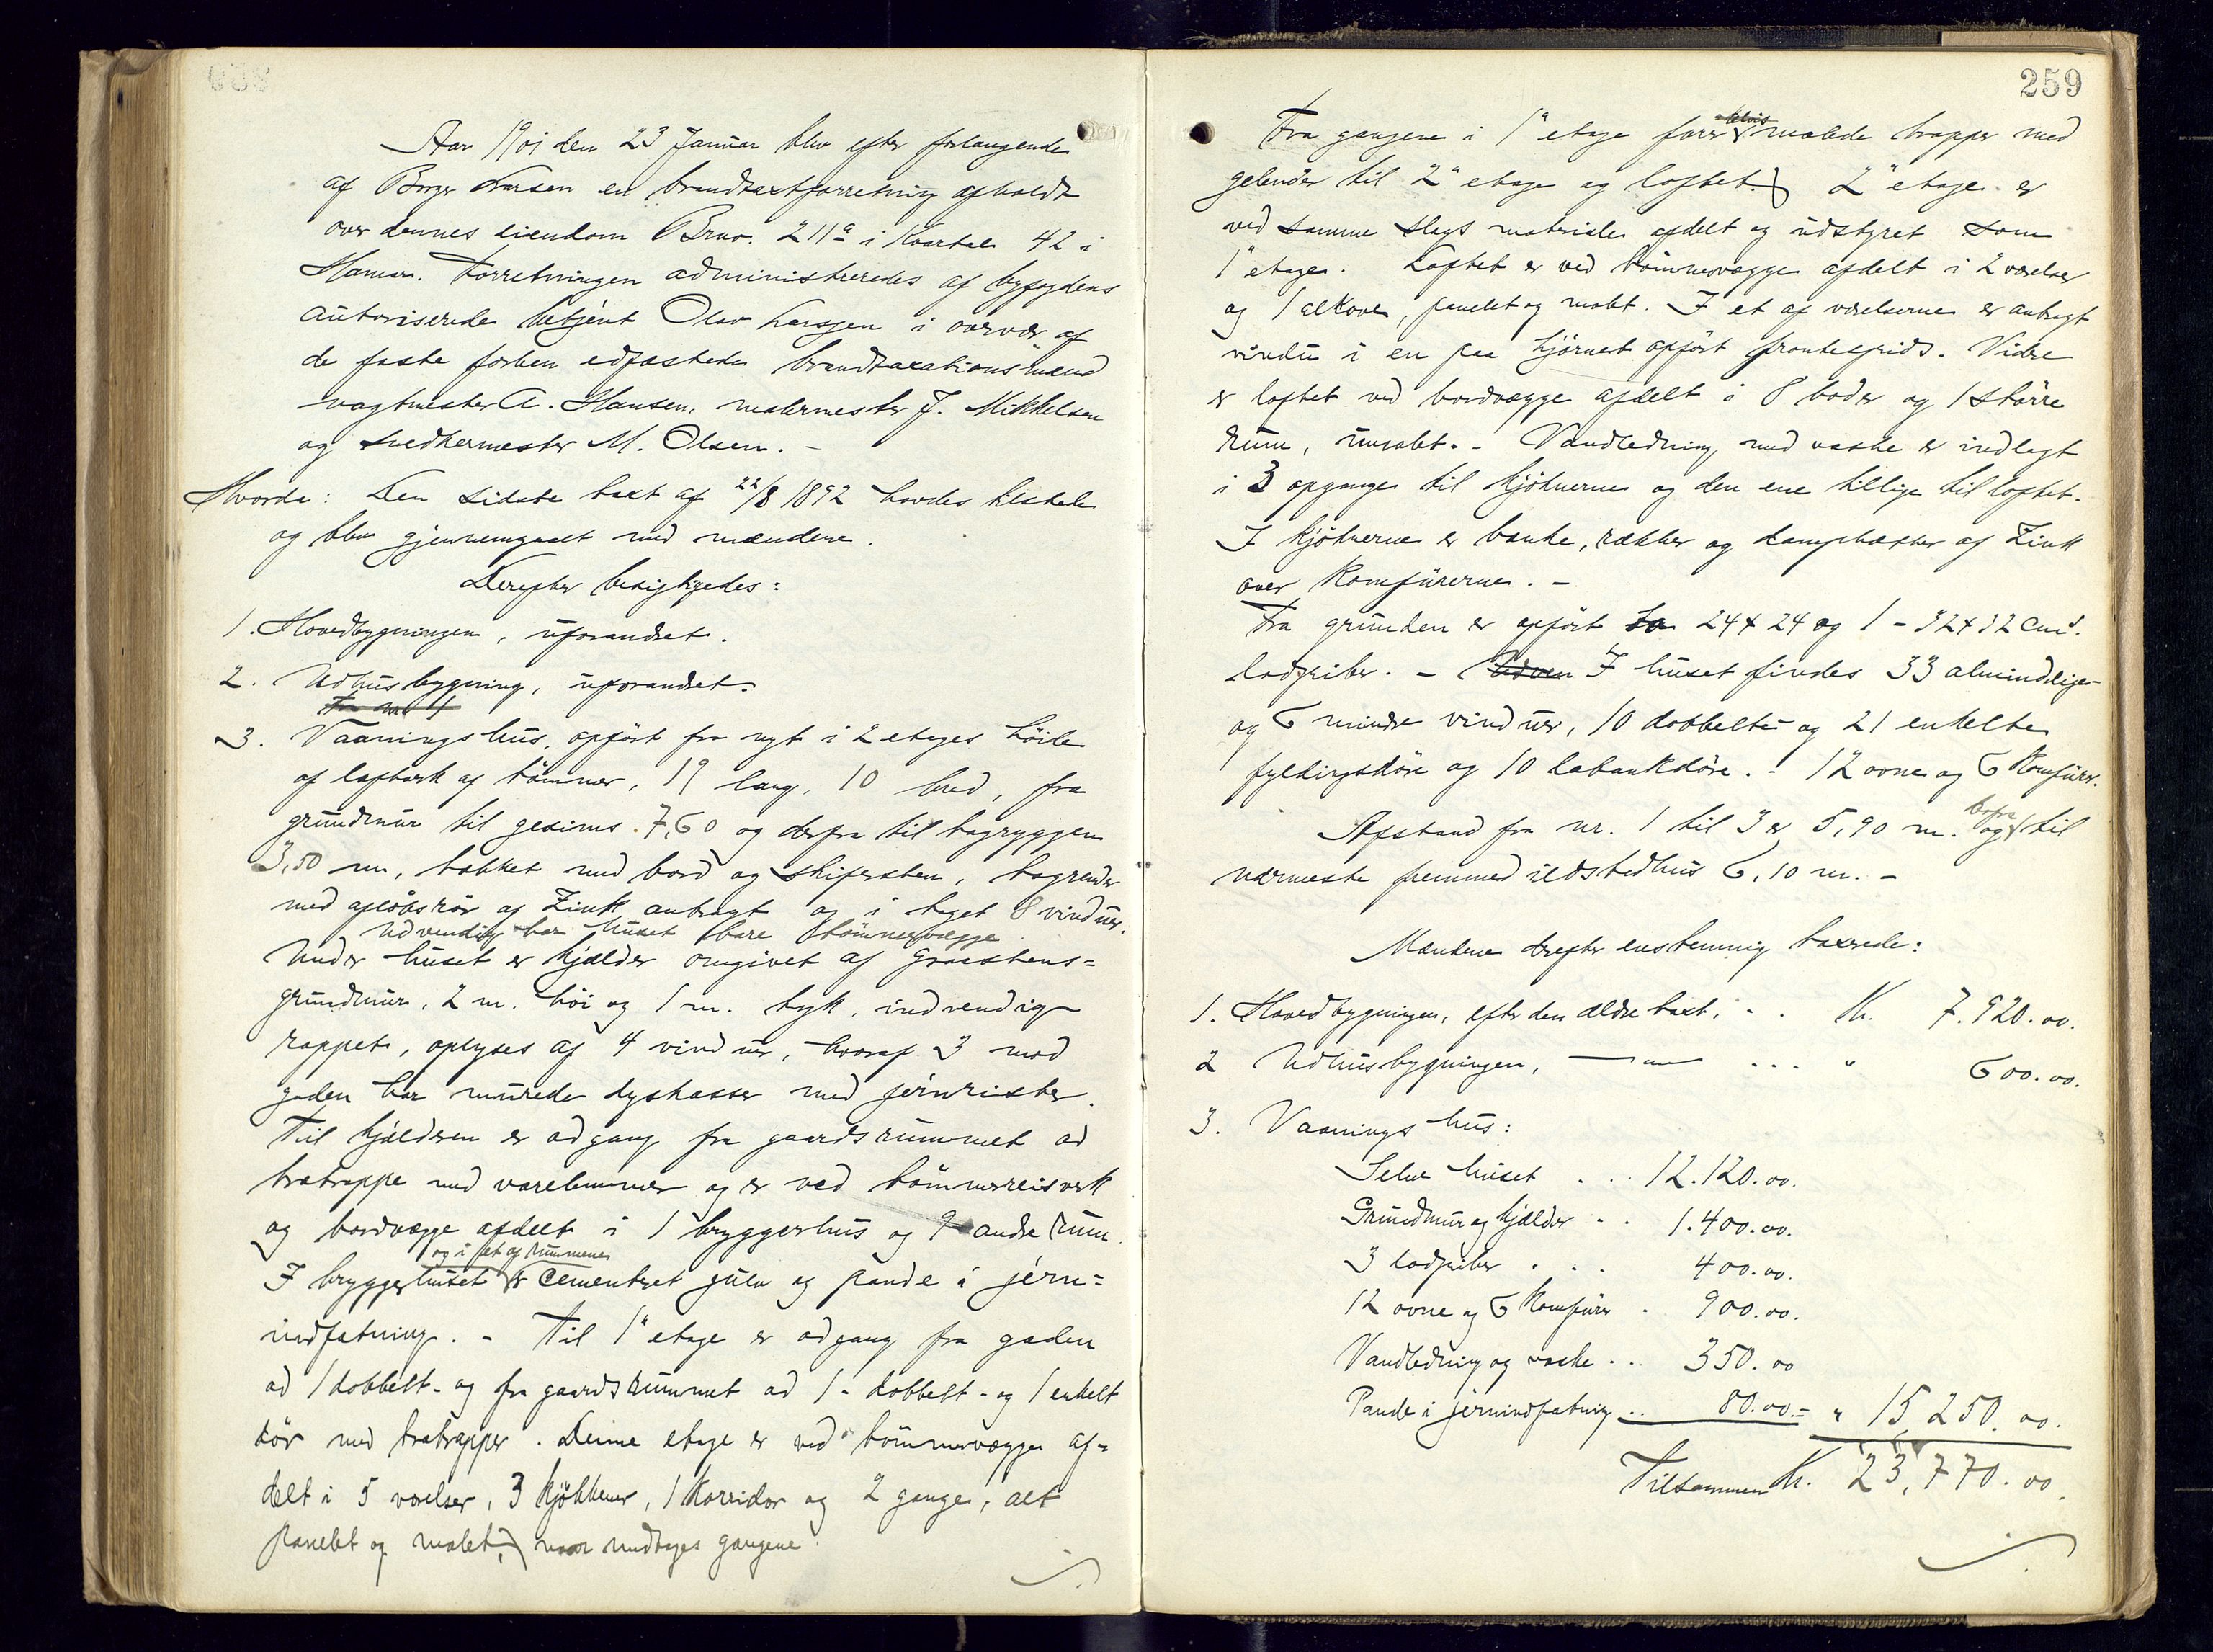 Aar 1901 den 23 Januar blev efter forlangende
af Borger Larsen en brandtaxtforretning afholdt
over dennes eiendom Brno. 211a i Kvartal 42 i
Hamar. Forretningen administreredes af byfogdens
autoriserede betjent Olav Larssen i overvær af
de faste forhen edfæstede brandtaxationsmænd
vagtmester A. Hansen, malermester J. Mikkelsen
og snedkermester M. Olsen. –
Hvorda: Den sidste taxt af 22/8 1892 havdes tilstede
og blev gjennemgaaet med mændene.
Derefter besigtigedes:
1. Hovedbygningen, uforandret.
2. Udhusbygning, uforandret.
3. Vaaningshus, opført fra nyt i 2 etages høide
af laftverk af tømmer, 19 lang, 10 bred, fra
grundmur til gesims 7,60 og derfra til tagryggen
3,50 m, tækket med bord og skifersten, tagrender
med afløbsrør af Zink anbragt og i taget 8 vinduer.
Udvendig har huset bare tømmervægge
Under huset er kjælder omgivet af graastens=
grundmur, 2 m. høi og 1 m. tyk, indvendig
rappet, oplyses af 4 vinduer, hvoraf 3 mod
gaden har murede lyskasser med jernrister.
Til kjælderen er adgang fra gaardsrummet ad
trætrappe med værelemmer og er ved tømmerreisverk
og bordvægge afdelt i 1 bryggerhus og 9 andre rum.
og i et af rummene
I bryggerhuset er cementeret gulv og pande i jern=
indfatning. – Til 1ste etage er adgang fra gaden
ad 1 dobbelt- og fra gaardsrummet ad 1- dobbelt- og 1 enkelt
dør med trætrapper. Denne etage er ved tømmervægge af=
delt i 5 værelser, 3 kjøkkener, 1 korridor og 2 gange, alt
panelet og malet, naar undtages gangene.
259
delvis
Fra gangene i 1" etage fører malede trapper med
gelender til 2" etage og loftet. 2" etage er
ved samme slags materiale afdelt og udstyret som
1" etage. Loftet er ved tømmervægge afdelt i 2 værelser
og 1 alkove, panelet og malt. I et af værelserne er anbragt
vindu i en paa hjørnet opført frontespids. Videre
er loftet ved bordvægge afdelt i 8 boder og 1 større
rum, umalet. – Vandledning med vaske er indlagt
i 3 opgange til kjøkkenerne og den ene tillige til loftet.
I kjøkkenerne er bænke, rækker og dampkasser af Zink
over Komfurerne. –
Fra grunden er opført to 24 x 24 og 1 – 32 x 32 cm's
ladpiber. – I huset findes 33 almindelige
og 6 mindre vinduer, 10 dobbelte og 21 enkelte
fyldingsdøre og 10 labankdøre. – 12 ovne og 6 Komfurer.
Afstand fra nr. 1 til 3 er 5,90 m. og herfra til
nærmeste fremmed ildstedhus 6,10 m. –
Mændene derefter enstemmig taxerede:
1. Hovedbygningen, efter den ældre taxt, . . Kr. 7.920.00.
2 Udhusbygningen, — " — . . . " 600.00.
3. Vaaningshus:
Selve huset . . . 12.120.00.
Grundmur og kjælder . . 1.400.00.
3 ladpiber . . . 400.00.
12 ovne og 6 Komfurer . 900.00.
Vandledning og vaske . . . 350.00
Pande i jernindfatning . . 80.00.= " 15,250.00.
Tilsammen Kr. 23,770.00.